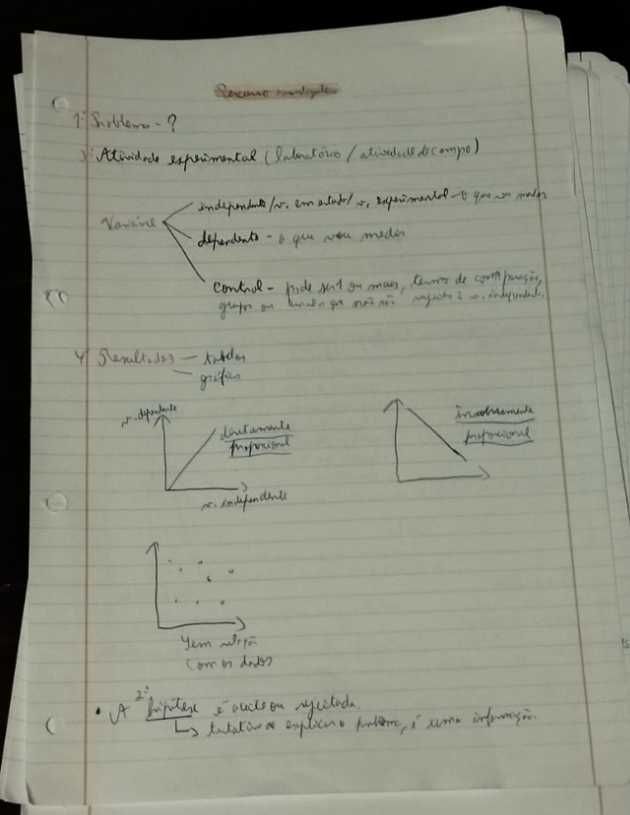 1º Problema - ?
3º Atividade experimental (laboratório / atividade de campo)
independente / v. em estudo / v. experimental - o que vou mudar
Variável
dependente - o que vou medir
control - pode ser 1 ou mais, termo de comparação,
grupo ou que não são sujeito à v. independente.
4º Resultados - tabelas
- gráficos
v. dependente
diretamente
proporcional
v. independente
inversamente
proporcional
Sem relação
com os dados
• A 2º hipótese é aceite ou rejeitada.
↳ tentativa de explicar o problema, é uma informação.